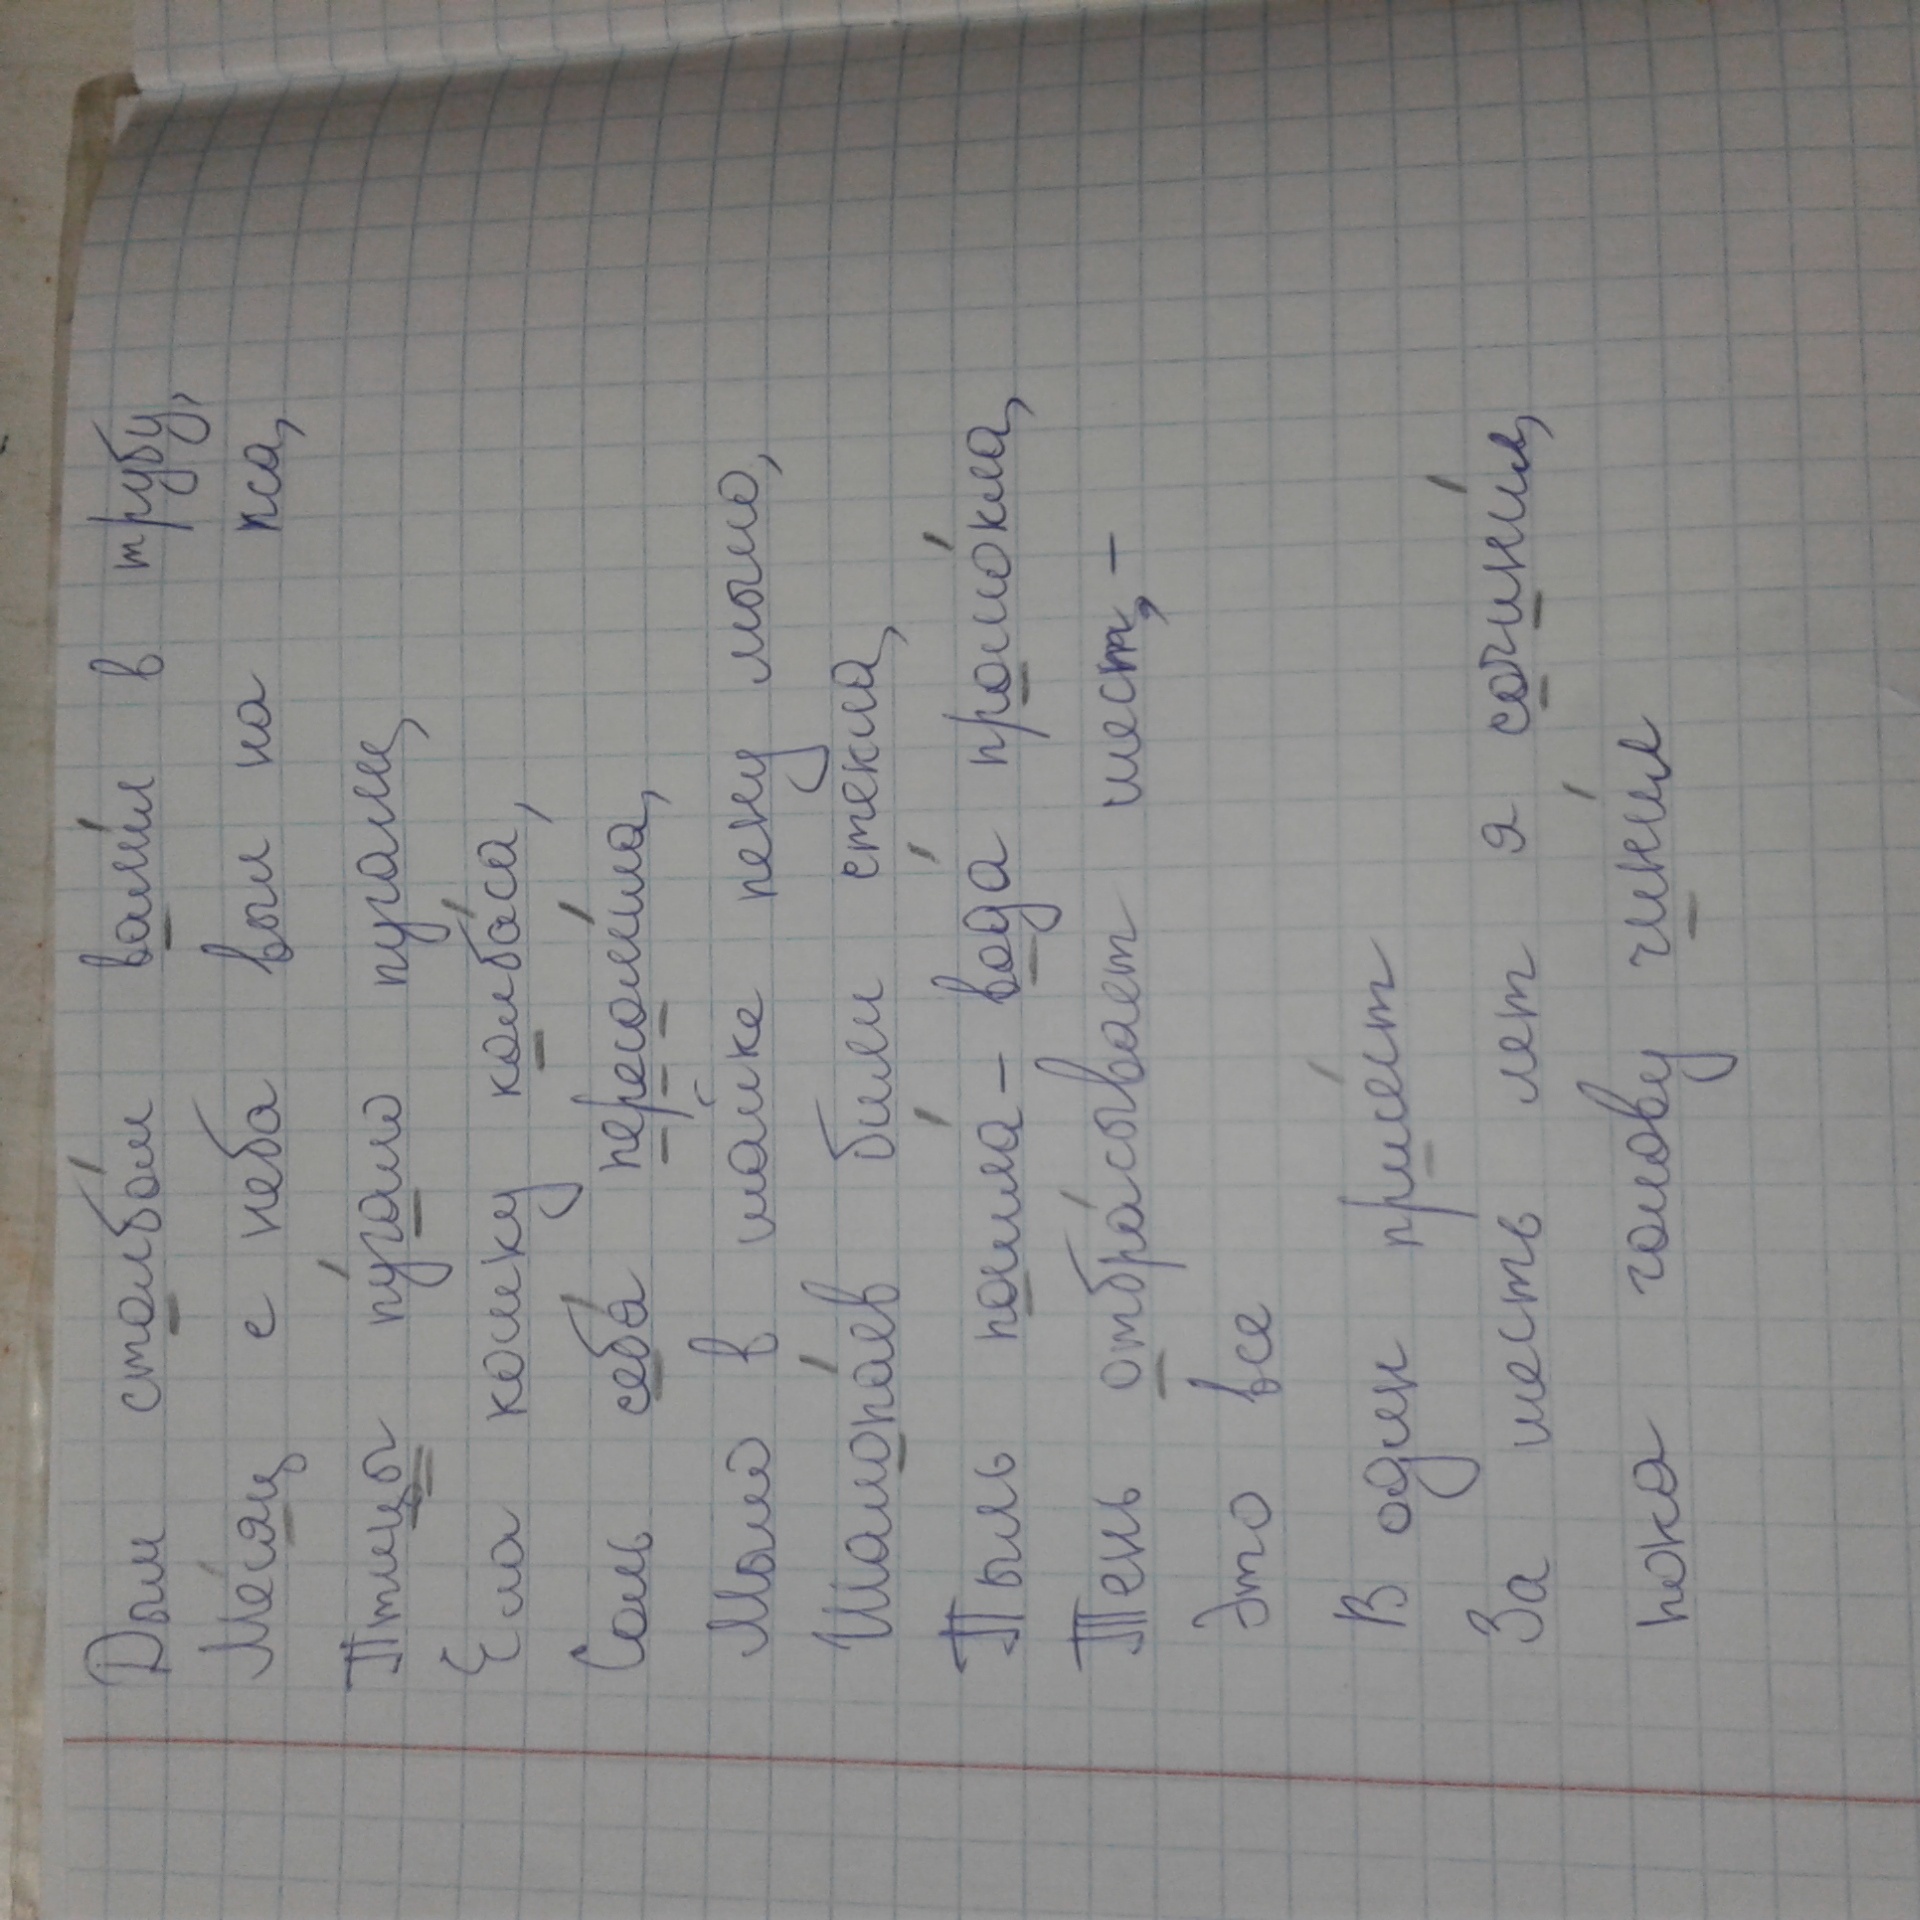 Дым столбо́м вали́л в трубу,
Ме́сяц с неба выл на пса,
Птицы пу́гало пугали,
Ела кошку колба́са,
Соль себя́ пересоли́ла,
Мыло в майке пену мыло,
Шалопа́ев били стёкла,
Пыль пошла́ – вода́ промо́кла,
Тень отбра́сывает шест, –
Это все
В один присе́ст
За шесть лет я сочини́л,
пока голову чини́л